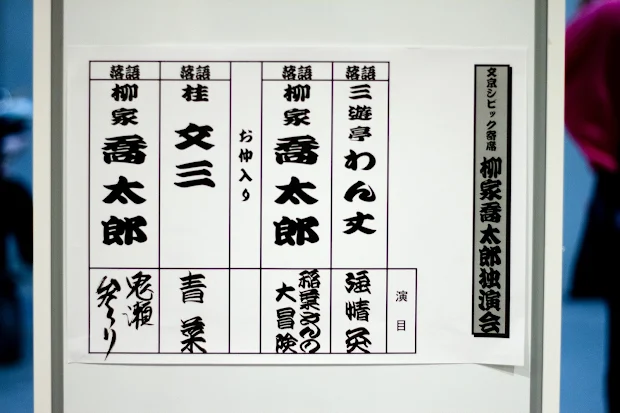 文京シビック寄席 柳家喬太郎独演会
演目
落語
三遊亭わん丈
強情灸
落語
柳家喬太郎
稲葉さんの
大冒険
お仲入り
落語
桂文三
青菜
落語
柳家喬太郎
参り